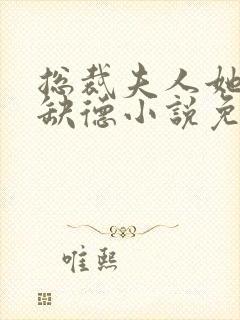 总裁夫人她
缺德小説免
唯熙